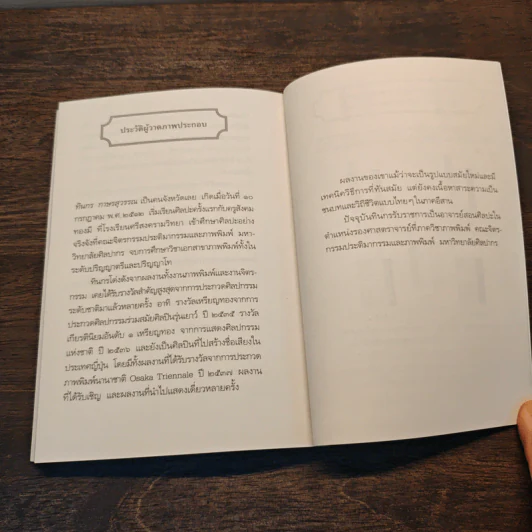 ประวัติผู้วาดภาพประกอบ
ทินกร กาษรสุวรรณ เป็นคนจังหวัดเลย เกิดเมื่อวันที่ ๑๐
กรกฎาคม พ.ศ.๒๕๑๓ เริ่มเรียนศิลปะครั้งแรกกับครูสังคม
ทองมี ที่โรงเรียนศรีสงครามวิทยา เข้าศึกษาศิลปะอย่าง
จริงจังที่คณะจิตรกรรมประติมากรรมและภาพพิมพ์ มหา-
วิทยาลัยศิลปากร จบการศึกษาวิชาเอกสาขาภาพพิมพ์ทั้งใน
ระดับปริญญาตรีและปริญญาโท
ทินกรโด่งดังจากผลงานทั้งงานภาพพิมพ์และงานจิตร-
กรรม เคยได้รับรางวัลสำคัญสูงสุดจากการประกวดศิลปกรรม
ระดับชาติมาแล้วหลายครั้ง อาทิ รางวัลเหรียญทองจากการ
ประกวดศิลปกรรมร่วมสมัยศิลปินรุ่นเยาว์ ปี ๒๕๓๕ รางวัล
เกียรตินิยมอันดับ ๑ เหรียญทอง จากการแสดงศิลปกรรม
แห่งชาติ ปี ๒๕๓๖ และยังเป็นศิลปินที่ไปสร้างชื่อเสียงใน
ประเทศญี่ปุ่น โดยมีทั้งผลงานที่ได้รับรางวัลจากการประกวด
ภาพพิมพ์นานาชาติ Osaka Triennale ปี ๒๕๓๗ ผลงาน
ที่ได้รับเชิญ และผลงานที่นำไปแสดงเดี่ยวหลายครั้ง
ผลงานของเขาแม้ว่าจะเป็นรูปแบบสมัยใหม่และมี
เทคนิควิธีการที่ทันสมัย แต่ยังคงเนื้อหาสาระความเป็น
ชนบทและวิถีชีวิตแบบไทยๆ ในภาคอีสาน
ปัจจุบันทินกรรับราชการเป็นอาจารย์สอนศิลปะใน
ตำแหน่งรองศาสตราจารย์ที่ภาควิชาภาพพิมพ์ คณะจิตร-
กรรมประติมากรรมและภาพพิมพ์ มหาวิทยาลัยศิลปากร